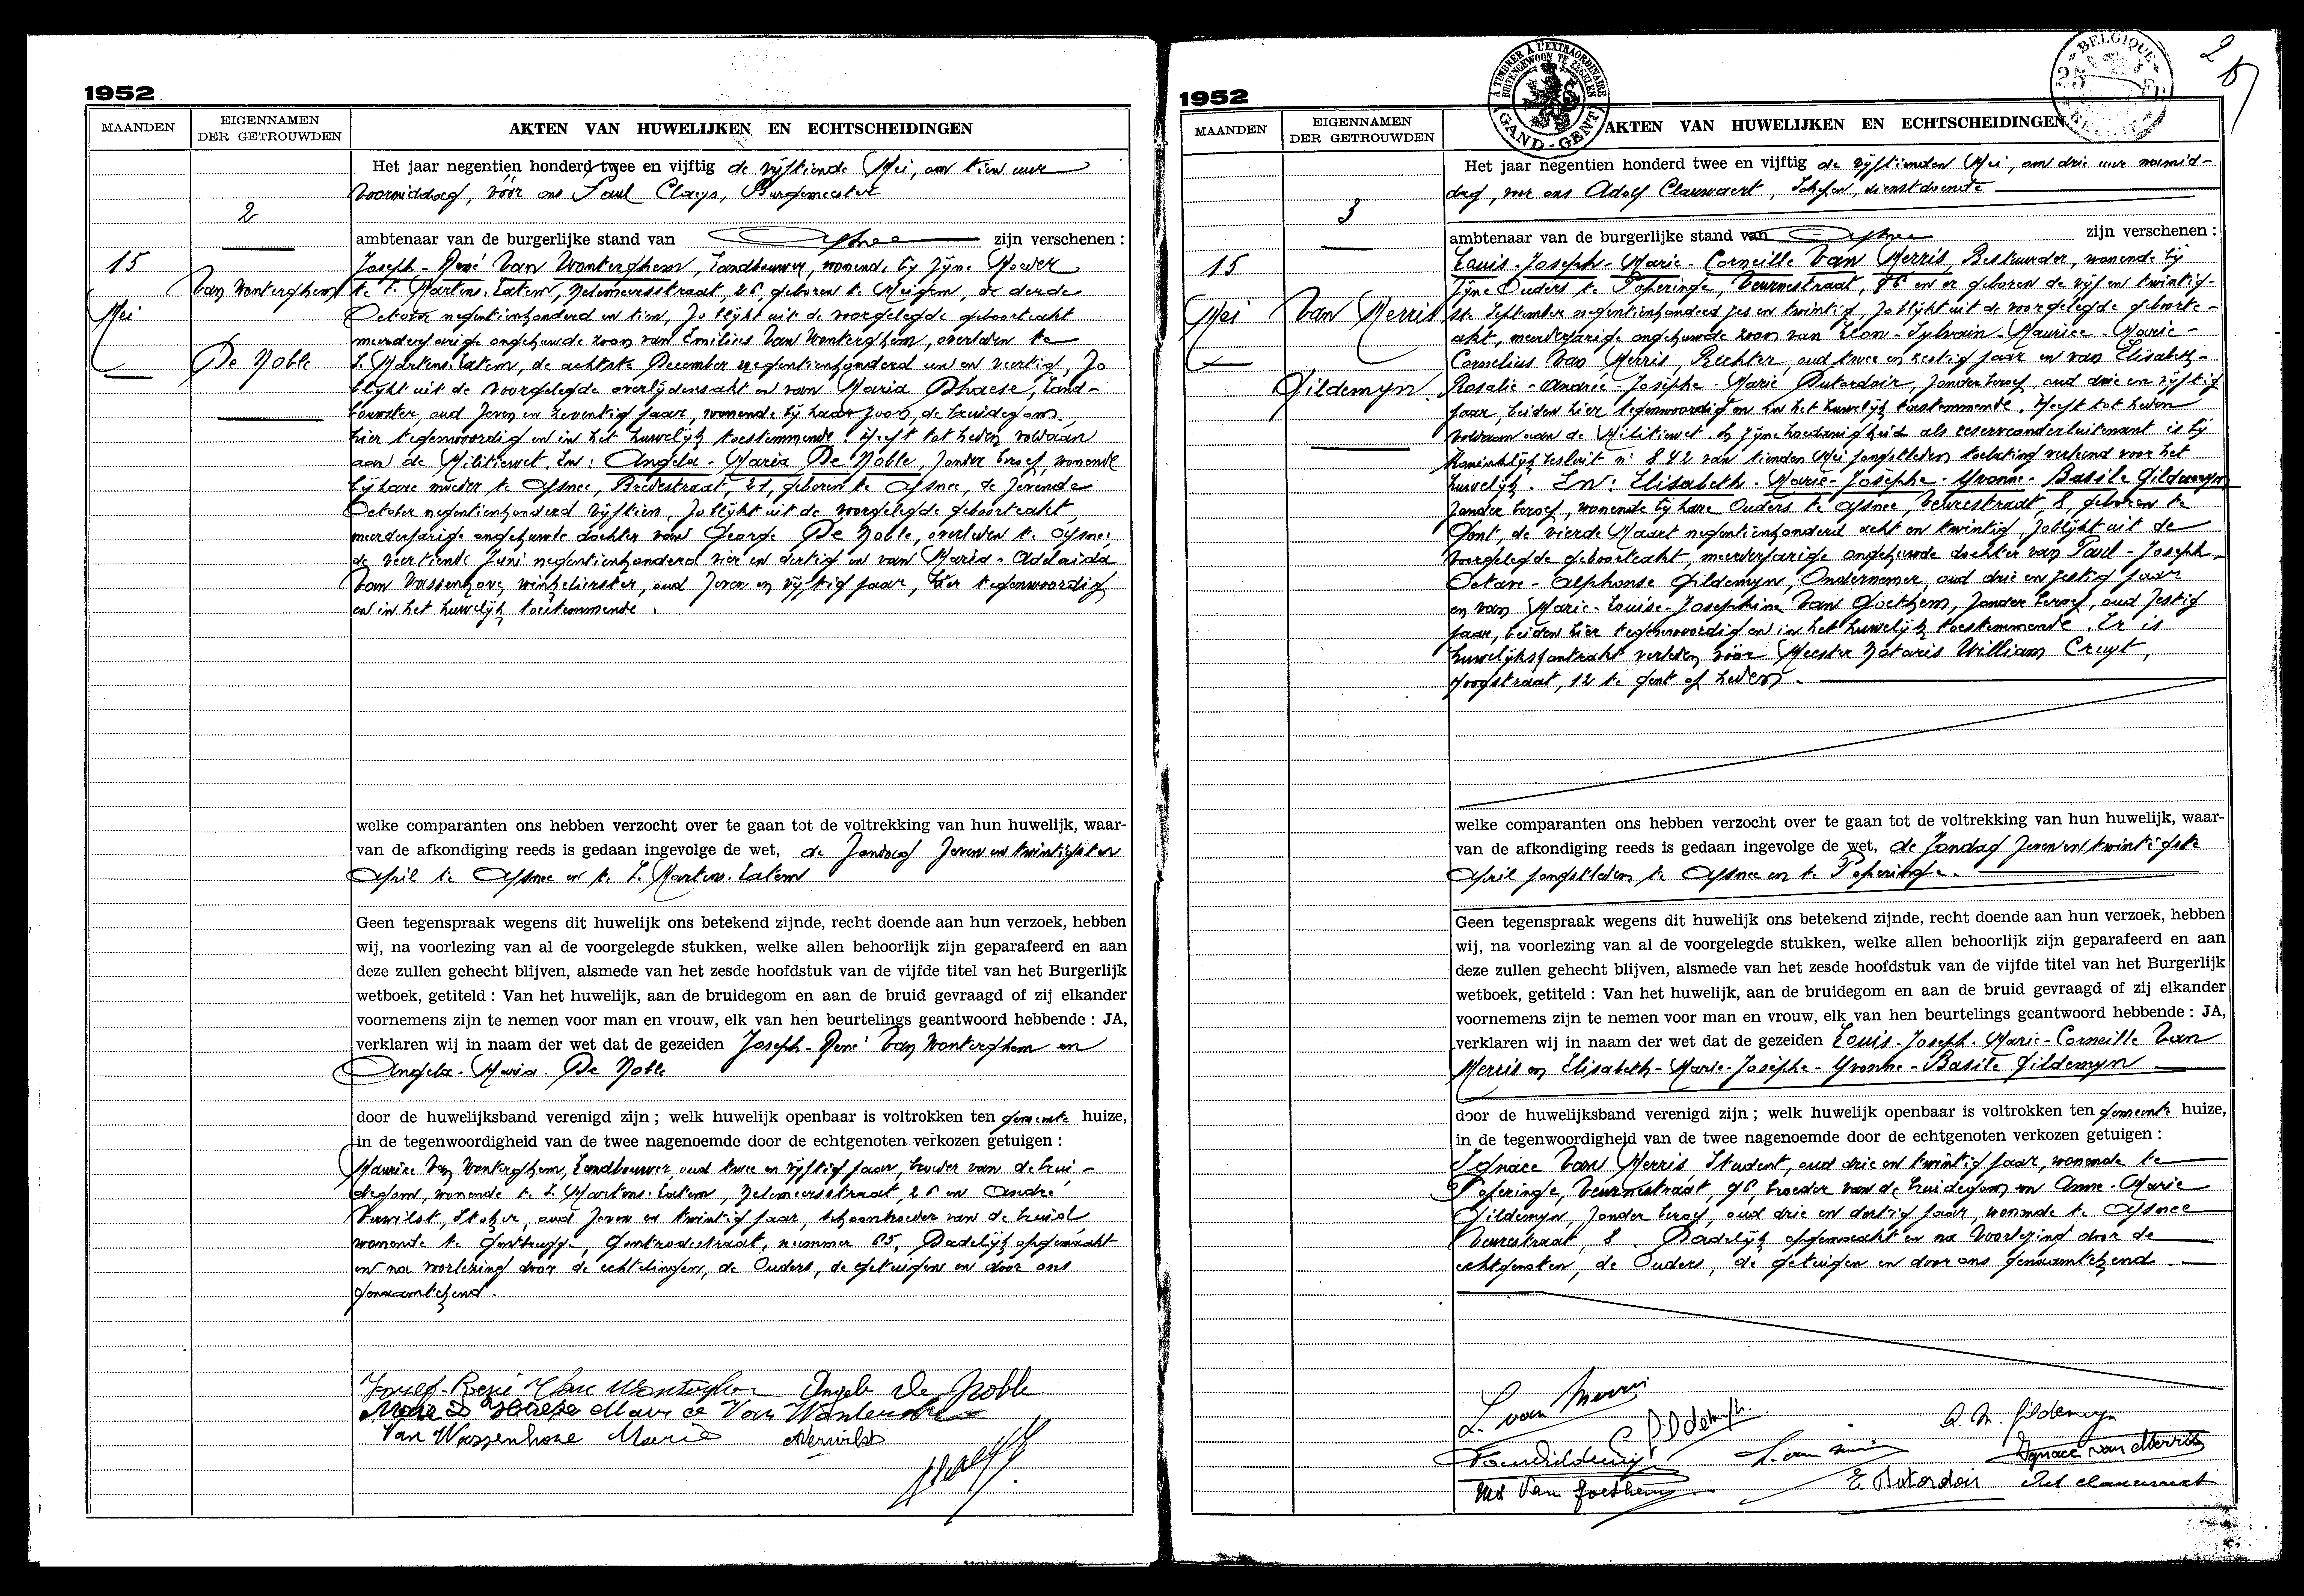 1952
MAANDEN
EIGENNAMEN
DER GETROUWDEN
AKTEN VAN HUWELIJKEN EN ECHTSCHEIDINGEN
Het jaar negentien honderd twee en vijftig de vijftiende Mei, om tien uur
voormiddag, vóór ons Paul Claeys, Burgemeester
2
ambtenaar van de burgerlijke stand van Afsnee zijn verschenen :
15
Mei
Van Wonterghem
De Noble
Joseph-René Van Wonterghem, Landbouwer, wonende bij zijne Moeder
te St Martens-Latem, 26, geboren te Meigem, de derde
October negentienhonderd en tien, zo blijkt uit de voorgelegde geboorteakt
meerderjarige ongehuwde zoon van Emilius Van Wonterghem, overleden te
St Martens-Latem, de achtste December negentienhonderd een en veertig, zo
blijkt uit de voorgelegde overlijdensakt en van Maria Dhaese, Land-
bouwster, oud zeven en zeventig jaar, wonende bij haar zoon, de bruidegom,
hier tegenwoordig en in het huwelijk toestemmende. Heeft tot heden voldaan
aan de Militiewet. En: Angela-Maria De Noble, zonder beroep, wonende
bij hare moeder te Afsnee, Bredestraat, 21, geboren te Afsnee, de zevende
October negentienhonderd vijftien, zo blijkt uit de voorgelegde geboorteakt,
meerderjarige ongehuwde dochter van George De Noble, overleden te Afsnee
de veertiende Juni negentienhonderd vier en dertig en van Maria-Adelaida
Van Wassenhove, winkelierster, oud zeven en vijftig jaar, hier tegenwoordig
en in het huwelijk toestemmende.
welke comparanten ons hebben verzocht over te gaan tot de voltrekking van hun huwelijk, waar-
van de afkondiging reeds is gedaan ingevolge de wet, de Zondag zeven en twintigsten
April te Afsnee en te St Martens-Latem
Geen tegenspraak wegens dit huwelijk ons betekend zijnde, recht doende aan hun verzoek, hebben
wij, na voorlezing van al de voorgelegde stukken, welke allen behoorlijk zijn geparafeerd en aan
deze zullen gehecht blijven, alsmede van het zesde hoofdstuk van de vijfde titel van het Burgerlijk
wetboek, getiteld : Van het huwelijk, aan de bruidegom en aan de bruid gevraagd of zij elkander
voornemens zijn te nemen voor man en vrouw, elk van hen beurtelings geantwoord hebbende : JA,
verklaren wij in naam der wet dat de gezeiden Joseph-René Van Wonterghem en
Angela-Maria De Noble
door de huwelijksband verenigd zijn ; welk huwelijk openbaar is voltrokken ten gemeente huize,
in de tegenwoordigheid van de twee nagenoemde door de echtgenoten verkozen getuigen :
Maurice Van Wonterghem, Landbouwer, oud twee en vijftig jaar, broeder van de brui-
degom, wonende te St Martens-Latem, 26 en André
Verwilst, Stoker, oud zeven en twintig jaar, schoonbroeder van de bruid,
wonende te Gentbrugge, Gontrodestraat, nummer 65. Dadelijk opgemaakt
en na voorlezing door de echtelingen, de Ouders, de getuigen en door ons
genaamtekend.
Van Wonterghem Angela De Noble
Maurice Van Wonterghem
Van Wassenhove Maria AVerwilst
1952
A TIMBRER A L'EXTRAORDINAIRE
BUITENGEWOON TE ZEGELEN
GAND-GENT
BELGIQUE
2
MAANDEN
EIGENNAMEN
DER GETROUWDEN
AKTEN VAN HUWELIJKEN EN ECHTSCHEIDINGEN
Het jaar negentien honderd twee en vijftig de vijftienden Mei, om drie uur namid-
dag, voor ons Adolf Clauwaert, Schepen, dienstdoende
3
ambtenaar van de burgerlijke stand van Afsnee zijn verschenen :
15
Mei
Van Merris
Gildemyn
Louis-Joseph-Marie-Corneille Van Merris, Bestuurder, wonende bij
zijne Ouders te Poperinge, Veurnestraat, 96 en er geboren de vijf en twintig-
ste September negentienhonderd zes en twintig, zo blijkt uit de voorgelegde geboorte-
akt, meerderjarige ongehuwde zoon van Léon-Sylvain-Maurice-Marie-
Cornelius Van Merris, Rechter, oud twee en zestig jaar en van Elisabeth-
Rosalie-Andrée-Josèphe-Marie Dutordoir, zonder beroep, oud drie en vijftig
jaar, beiden hier tegenwoordig en in het huwelijk toestemmende. Heeft tot heden
voldaan aan de Militiewet. In zijne hoedanigheid als reserveonderluitenant is bij
Koninklijk besluit nr 842 van tienden Mei jongstleden toelating verleend voor het
huwelijk. En: Elisabeth-Marie-Josèphe-Yvonne-Basile Gildemyn
zonder beroep, wonende bij hare Ouders te Afsnee, Veurestraat, 8, geboren te
Gent, de vierde Maart negentienhonderd acht en twintig, zo blijkt uit de
voorgelegde geboorteakt, meerderjarige ongehuwde dochter van Paul-Joseph-
Octave-Alphonse Gildemyn, Ondernemer, oud drie en zestig jaar
en van Marie-Louise-Josephine Van Goethem, zonder beroep, oud zestig
jaar, beiden hier tegenwoordig en in het huwelijk toestemmende. Er is
huwelijkskontrakt verleden vóór Meester Notaris William Cruyt,
Hoogstraat, 12 te Gent op heden.
welke comparanten ons hebben verzocht over te gaan tot de voltrekking van hun huwelijk, waar-
van de afkondiging reeds is gedaan ingevolge de wet, de Zondag zeven en twintigste
April jongstleden te Afsnee en te Poperinge.
Geen tegenspraak wegens dit huwelijk ons betekend zijnde, recht doende aan hun verzoek, hebben
wij, na voorlezing van al de voorgelegde stukken, welke allen behoorlijk zijn geparafeerd en aan
deze zullen gehecht blijven, alsmede van het zesde hoofdstuk van de vijfde titel van het Burgerlijk
wetboek, getiteld : Van het huwelijk, aan de bruidegom en aan de bruid gevraagd of zij elkander
voornemens zijn te nemen voor man en vrouw, elk van hen beurtelings geantwoord hebbende : JA,
verklaren wij in naam der wet dat de gezeiden Louis-Joseph-Marie-Corneille Van
Merris en Elisabeth-Marie-Josèphe-Yvonne-Basile Gildemyn
door de huwelijksband verenigd zijn ; welk huwelijk openbaar is voltrokken ten gemeente huize,
in de tegenwoordigheid van de twee nagenoemde door de echtgenoten verkozen getuigen :
Ignace Van Merris Student, oud drie en twintig jaar, wonende te
Poperinge, Veurnestraat, 96, broeder van de bruidegom en Anne-Marie
Gildemyn, zonder beroep, oud drie en dertig jaar, wonende te Afsnee
Veurestraat, 8. Dadelijk opgemaakt en na voorlezing door de
echtgenoten, de Ouders, de getuigen en door ons genaamtekend.
L. van Merris
A. M. Gildemyn
Ignace van Merris
Van Goethem
E. Dutordoir